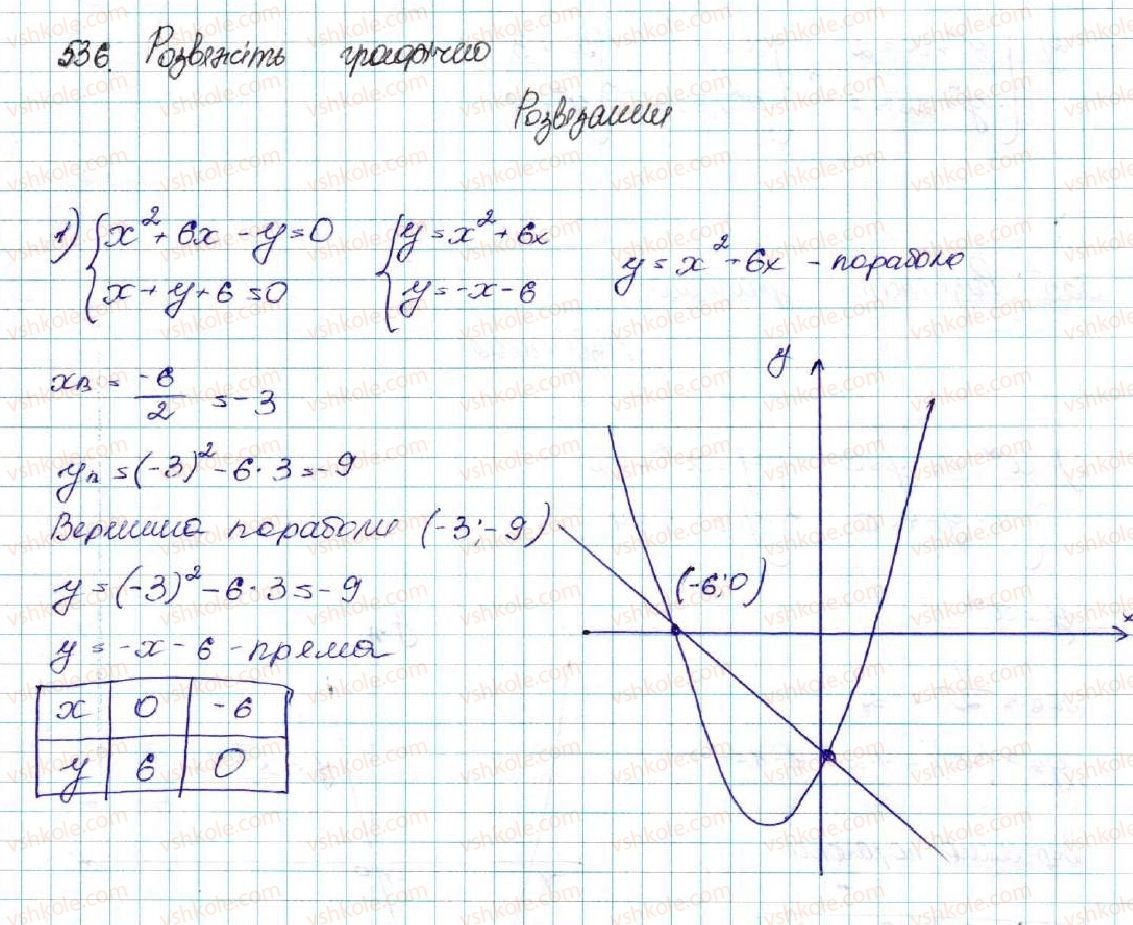 536. Розвяжіть графічно
Розвязання
1) { x² + 6x - y = 0 { y = x² + 6x
x + y + 6 = 0 y = -x - 6
y = x² + 6x - парабола
xв = -6/2 = -3
yв = (-3)² - 6·3 = -9
Вершина параболи (-3; -9)
y = (-3)² - 6·3 = -9
y = -x - 6 - пряма
x 0 -6
y 6 0
y
(-6;0)
x
vshkole.com